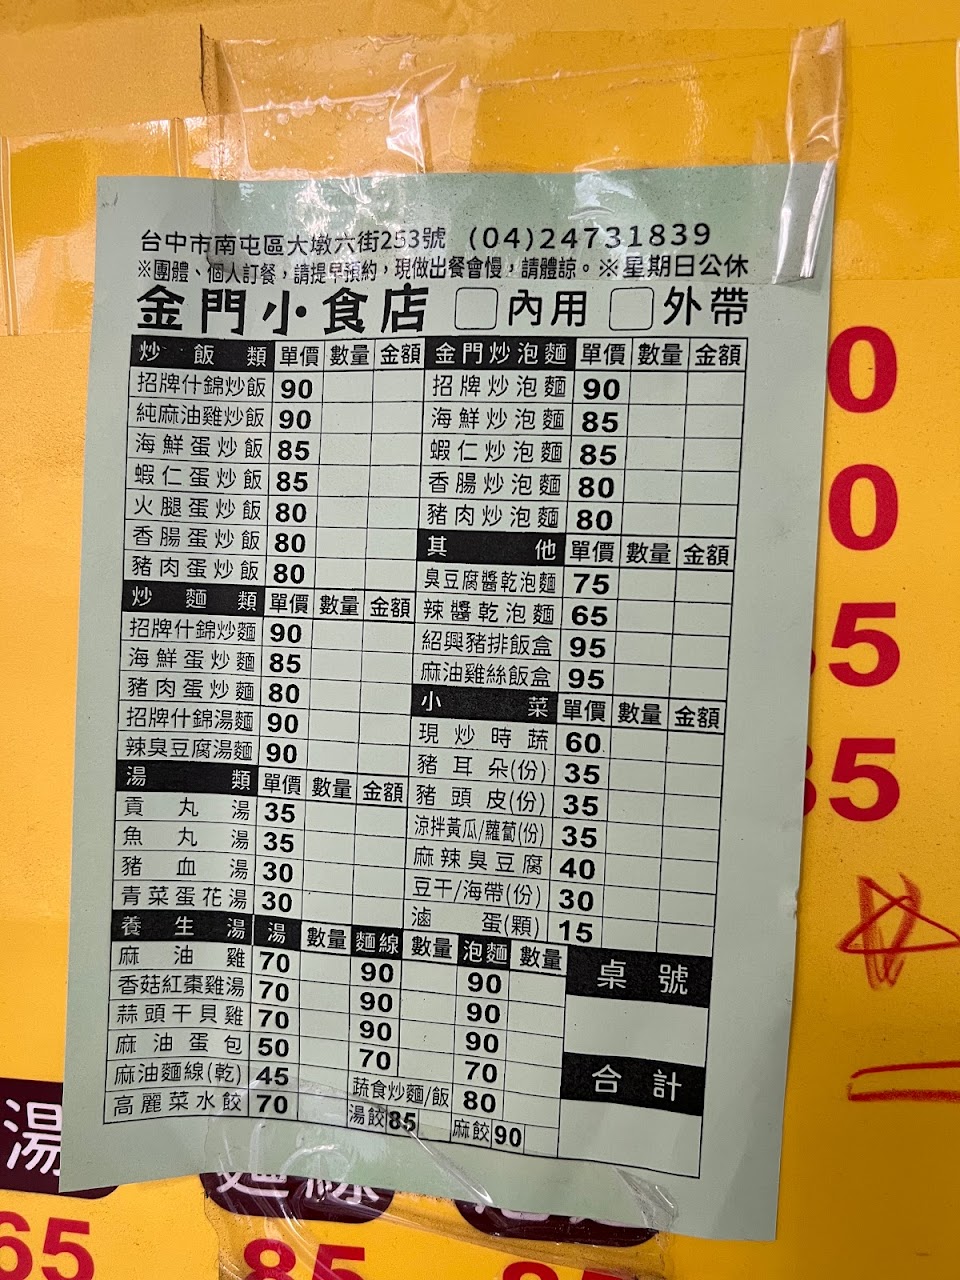 台中市南屯區大墩六街253號 (04)24731839
※團體、個人訂餐，請提早預約，現做出餐會慢，請體諒。※星期日公休
金門小食店 □內用 □外帶
炒飯類 單價 數量 金額
招牌什錦炒飯 90
純麻油雞炒飯 90
海鮮蛋炒飯 85
蝦仁蛋炒飯 85
火腿蛋炒飯 80
香腸蛋炒飯 80
豬肉蛋炒飯 80
炒麵類 單價 數量 金額
招牌什錦炒麵 90
海鮮蛋炒麵 85
豬肉蛋炒麵 80
招牌什錦湯麵 90
辣臭豆腐湯麵 90
湯類 單價 數量 金額
貢丸湯 35
魚丸湯 35
豬血湯 30
青菜蛋花湯 30
金門炒泡麵 單價 數量 金額
招牌炒泡麵 90
海鮮炒泡麵 85
蝦仁炒泡麵 85
香腸炒泡麵 80
豬肉炒泡麵 80
其他 單價 數量 金額
臭豆腐醬乾泡麵 75
辣醬乾泡麵 65
紹興豬排飯盒 95
麻油雞絲飯盒 95
小菜 單價 數量 金額
現炒時蔬 60
豬耳朵(份) 35
豬頭皮(份) 35
涼拌黃瓜/蘿蔔(份) 35
麻辣臭豆腐 40
豆干/海帶(份) 30
滷蛋(顆) 15
養生湯 湯 數量 麵線 數量 泡麵 數量
麻油雞 70 90 90
香菇紅棗雞湯 70 90 90
蒜頭干貝雞 70 90 90
麻油蛋包 50 70 70
麻油麵線(乾) 45 蔬食炒麵/飯 80
高麗菜水餃 70 湯餃 85 麻餃 90
桌號
合計
0
0
5
85
湯
65
85